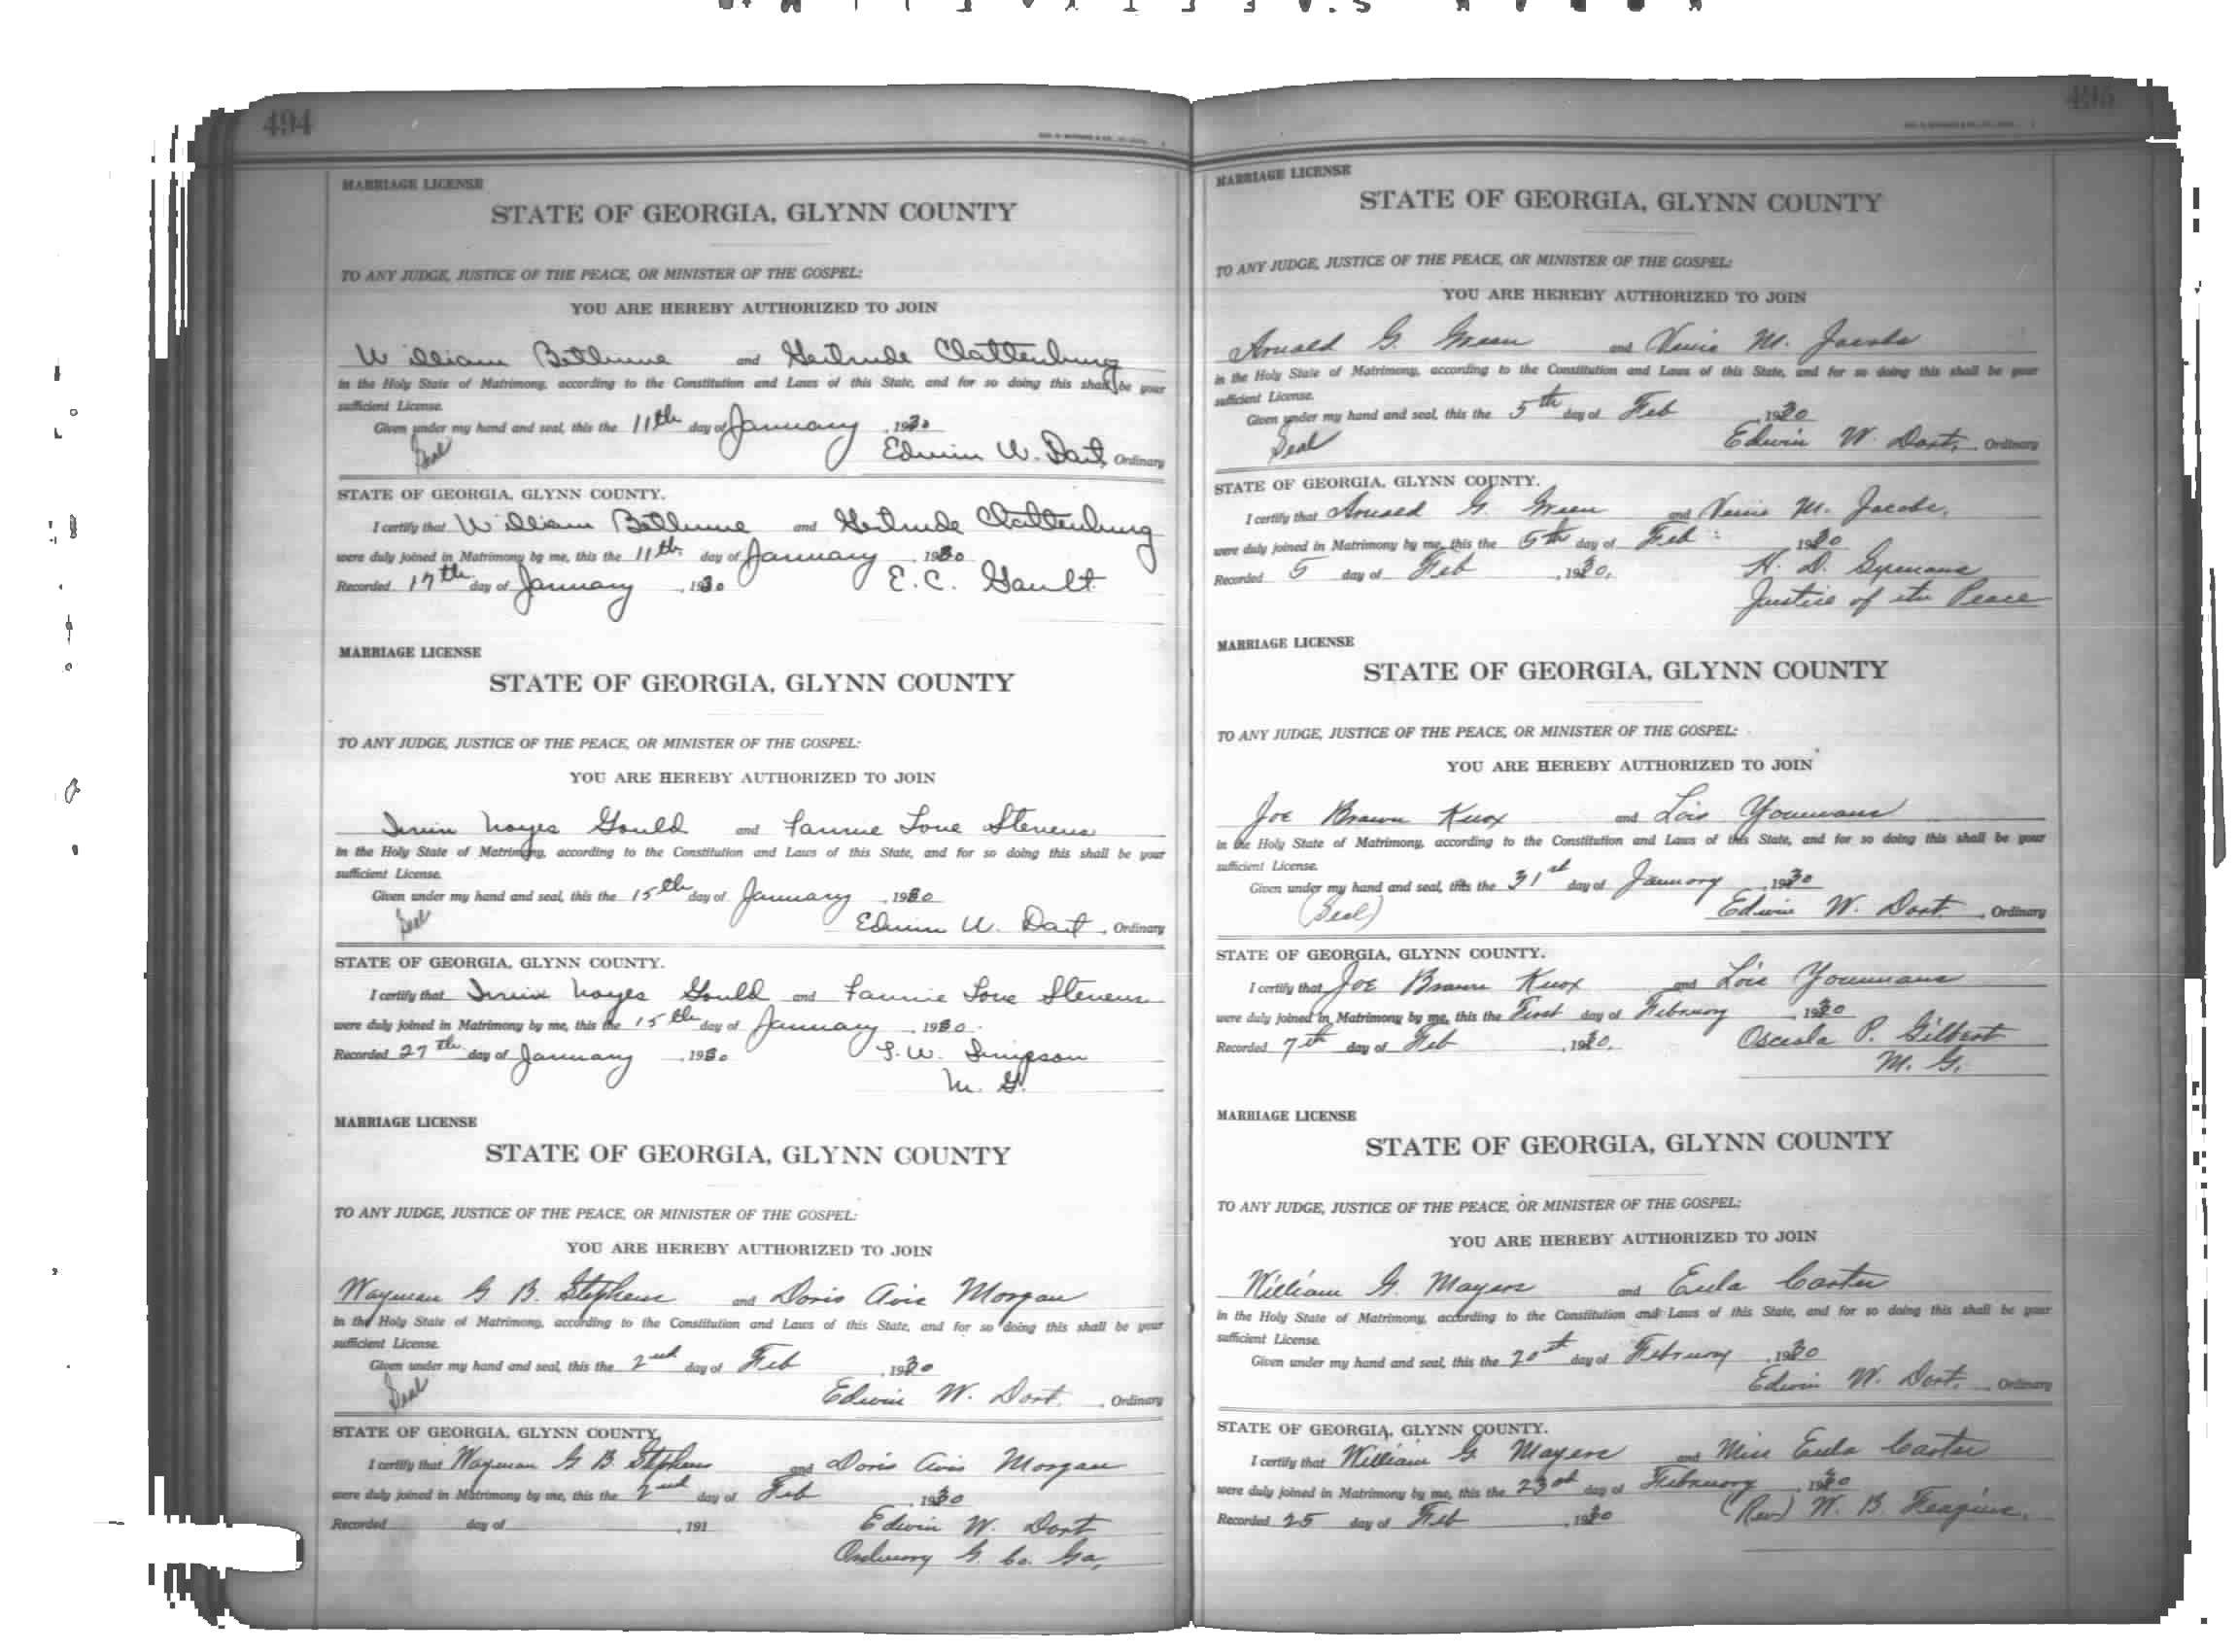 494
MARRIAGE LICENSE
STATE OF GEORGIA, GLYNN COUNTY
TO ANY JUDGE, JUSTICE OF THE PEACE, OR MINISTER OF THE GOSPEL:
YOU ARE HEREBY AUTHORIZED TO JOIN
William Bethune and Gertrude Clattenburg
in the Holy State of Matrimony, according to the Constitution and Laws of this State, and for so doing this shall be your
sufficient License.
Given under my hand and seal, this the 11th day of January, 1930
Seal Edwin W. Dart, Ordinary
STATE OF GEORGIA, GLYNN COUNTY.
I certify that William Bethune and Gertrude Clattenburg
were duly joined in Matrimony by me, this the 11th day of January, 1930
Recorded 17th day of January, 1930 E. C. Gault
MARRIAGE LICENSE
STATE OF GEORGIA, GLYNN COUNTY
TO ANY JUDGE, JUSTICE OF THE PEACE, OR MINISTER OF THE GOSPEL:
YOU ARE HEREBY AUTHORIZED TO JOIN
Irvin Noyes Gould and Fannie Love Stevens
in the Holy State of Matrimony, according to the Constitution and Laws of this State, and for so doing this shall be your
sufficient License.
Given under my hand and seal, this the 15th day of January, 1930
Seal Edwin W. Dart, Ordinary
STATE OF GEORGIA, GLYNN COUNTY.
I certify that Irvin Noyes Gould and Fannie Love Stevens
were duly joined in Matrimony by me, this the 15th day of January, 1930
Recorded 27th day of January, 1930 S. W. Simpson
M. G.
MARRIAGE LICENSE
STATE OF GEORGIA, GLYNN COUNTY
TO ANY JUDGE, JUSTICE OF THE PEACE, OR MINISTER OF THE GOSPEL:
YOU ARE HEREBY AUTHORIZED TO JOIN
Wayman G B. Stephens and Doris Avis Morgan
in the Holy State of Matrimony, according to the Constitution and Laws of this State, and for so doing this shall be your
sufficient License.
Given under my hand and seal, this the 2nd day of Feb, 1930
Seal Edwin W. Dart, Ordinary
STATE OF GEORGIA, GLYNN COUNTY.
I certify that Wayman G B. Stephens and Doris Avis Morgan
were duly joined in Matrimony by me, this the 2nd day of Feb, 1930
Recorded day of, 191 Edwin W. Dart
Ordinary G. Co. Ga,
495
MARRIAGE LICENSE
STATE OF GEORGIA, GLYNN COUNTY
TO ANY JUDGE, JUSTICE OF THE PEACE, OR MINISTER OF THE GOSPEL:
YOU ARE HEREBY AUTHORIZED TO JOIN
Arnald G. Green and M. Jacobs
in the Holy State of Matrimony, according to the Constitution and Laws of this State, and for so doing this shall be your
sufficient License.
Given under my hand and seal, this the 5th day of Feb, 1930
Seal Edwin W. Dart, Ordinary
STATE OF GEORGIA, GLYNN COUNTY.
I certify that Arnald G. Green and M. Jacobs,
were duly joined in Matrimony by me, this the 5th day of Feb, 1930
Recorded 5 day of Feb, 1930. H. D.
Justice of the Peace
MARRIAGE LICENSE
STATE OF GEORGIA, GLYNN COUNTY
TO ANY JUDGE, JUSTICE OF THE PEACE, OR MINISTER OF THE GOSPEL:
YOU ARE HEREBY AUTHORIZED TO JOIN
Joe Brown Knox and Lois Youmans
in the Holy State of Matrimony, according to the Constitution and Laws of this State, and for so doing this shall be your
sufficient License.
Given under my hand and seal, this the 31st day of January, 1930
(Seal) Edwin W. Dart, Ordinary
STATE OF GEORGIA, GLYNN COUNTY.
I certify that Joe Brown Knox and Lois Youmans
were duly joined in Matrimony by me, this the First day of February, 1930
Recorded 7th day of Feb, 1930. Osceola P. Gilbert
M. G.
MARRIAGE LICENSE
STATE OF GEORGIA, GLYNN COUNTY
TO ANY JUDGE, JUSTICE OF THE PEACE, OR MINISTER OF THE GOSPEL:
YOU ARE HEREBY AUTHORIZED TO JOIN
William G. Mayers and Eula Carter
in the Holy State of Matrimony, according to the Constitution and Laws of this State, and for so doing this shall be your
sufficient License.
Given under my hand and seal, this the 20th day of February, 1930
Edwin W. Dart, Ordinary
STATE OF GEORGIA, GLYNN COUNTY.
I certify that William G Mayers and Miss Eula Carter
were duly joined in Matrimony by me, this the 23rd day of February, 1930
Recorded 25 day of Feb, 1930 (Rev) W. B. Feagins.